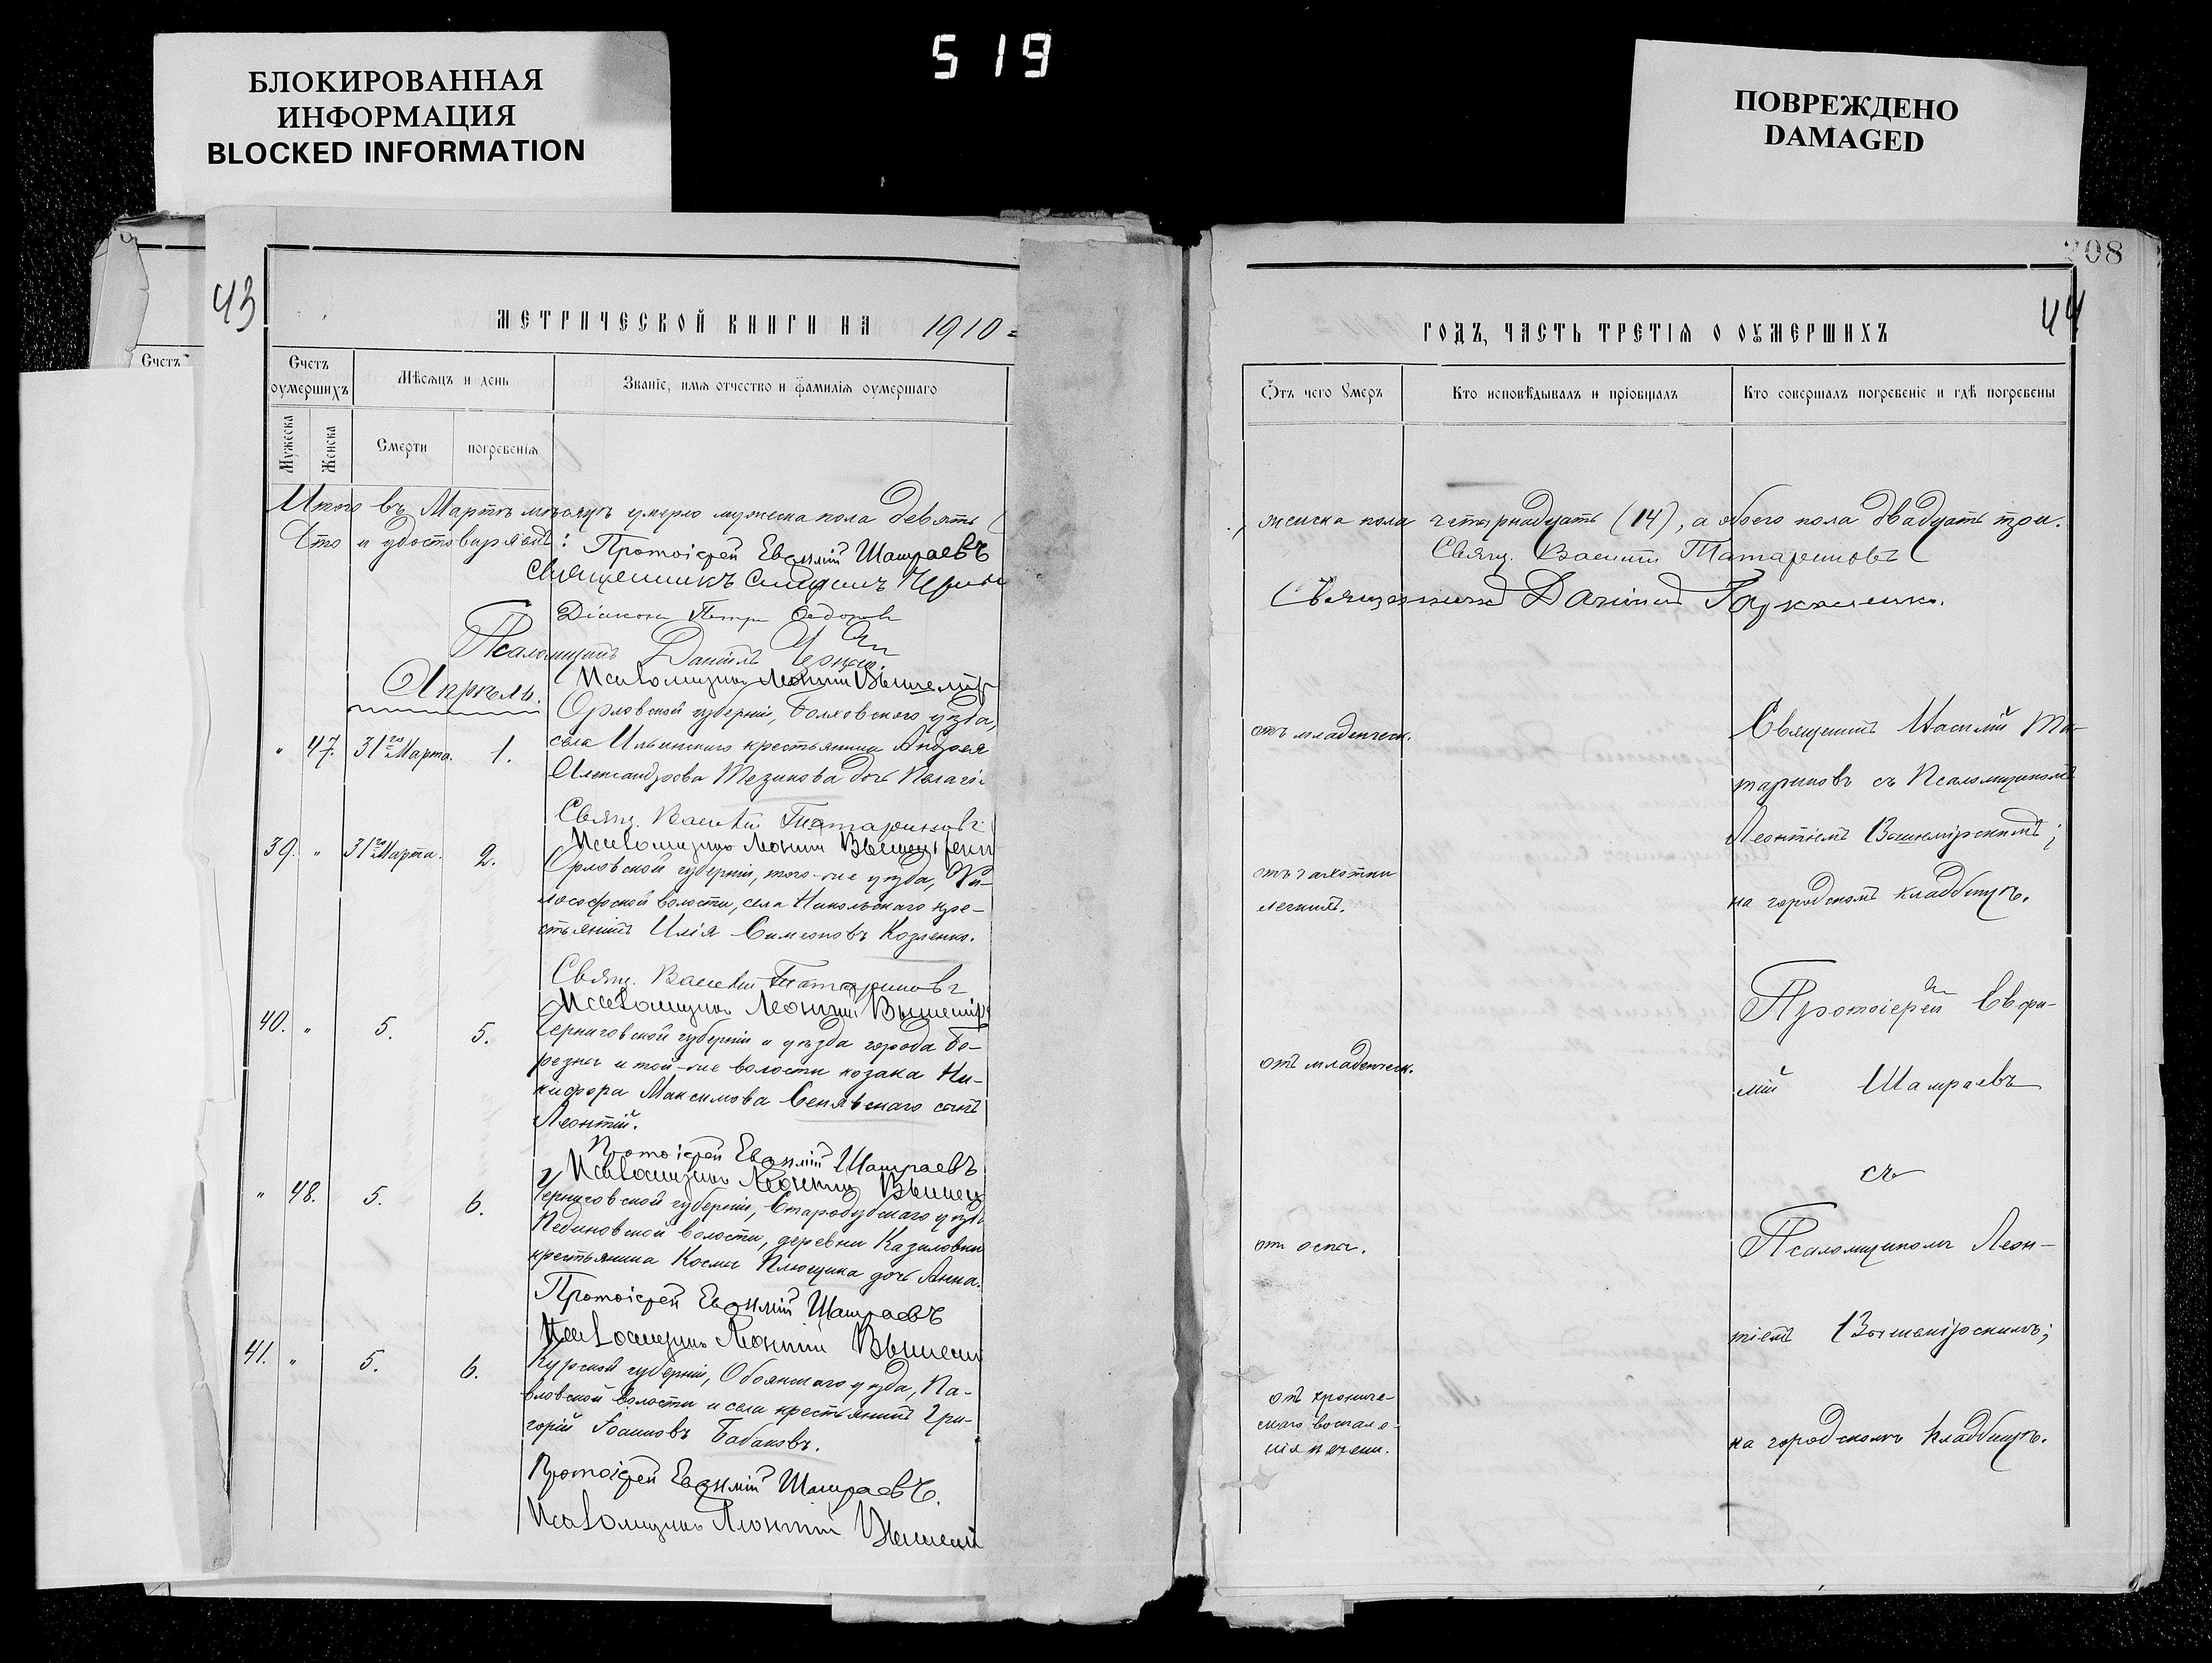 519
БЛОКИРОВАННАЯ
ИНФОРМАЦИЯ
BLOCKED INFORMATION
ПОВРЕЖДЕНО
DAMAGED
Счетъ
43
МЕТРИЧЕСКОЙ КНИГИ НА 1910
Счетъ оумершихъ
Мѣсяцъ и день
Званіе, имя отчество и фамилія оумершаго
Мужеска
Женска
Смерти
погребенія
Итого въ Мартѣ мѣсяцѣ умерло мужеска пола девять (
Что и удостовѣряемъ: Протоіерей Евѳимій Шамраевъ
Священникъ
Діаконъ Петръ Ѳедоровъ
Псаломщикъ Даніилъ
Псаломщикъ Леонтій Вышемір
Апрѣль.
Орловской губерніи, Болховского уѣзда,
" 47. 31го Марта. 1. села Ильинскаго крестьянина Андрея
Александрова Тезикова дочь Пелагія
Свящ. Василій Татариновъ
Псаломщикъ Леонтій Вышемірскій
39. " 31го Марта. 2. Орловской губерніи, того-же уѣзда, Фи-
лософской волости, села Никольскаго кре-
стьянинъ Илія Симеоновъ Козленко.
Свящ. Василій Татариновъ
Псаломщикъ Леонтій Вышемір
40. " 5. 5. Черниговской губерніи и уѣзда города Бе-
резны и той-же волости козака Ни-
кифора Максимова Сенявскаго сынъ
Леонтій.
Протоіерей Евѳимій Шамраевъ
Псаломщикъ Леонтій Вышем
" 48. 5. 6. Черниговской губерніи, Стародубскаго уѣзда
волости, деревни Казиловки
крестьянина Космы Плющика дочь Анна.
Протоіерей Евѳимій Шамраевъ
Псаломщикъ Леонтій Вышем
41. " 5. 6. Курской губерніи, Обоянскаго уѣзда, Па-
вловской волости и села крестьянинъ Гри-
горій Іоанновъ Бабаковъ.
Протоіерей Евѳимій Шамраевъ.
Псаломщикъ Леонтій Вышемі
208
44
ГОДЪ, ЧАСТЬ ТРЕТІЯ О ОУМЕРШИХЪ
Отъ чего умеръ
Кто исповѣдывалъ и пріобщалъ
Кто совершалъ погребеніе и гдѣ погребены
женска пола четырнадцать (14), а обоего пола двадцать три.
Свящ. Василій Татариновъ
Священникъ Даніилъ
отъ младенческ.
Священникъ Василій Та-
тариновъ съ Псаломщикомъ
Леонтіемъ Вышемірскимъ;
на городскомъ кладбищѣ.
отъ чахотки
легкихъ.
Протоіерей Евѳи-
мій Шамраевъ
съ
Псаломщикомъ Леон-
тіемъ Вышемірскимъ;
на городскомъ кладбищѣ.
отъ младенческ.
отъ оспы.
отъ хрониче-
скаго воспале-
нія печени.